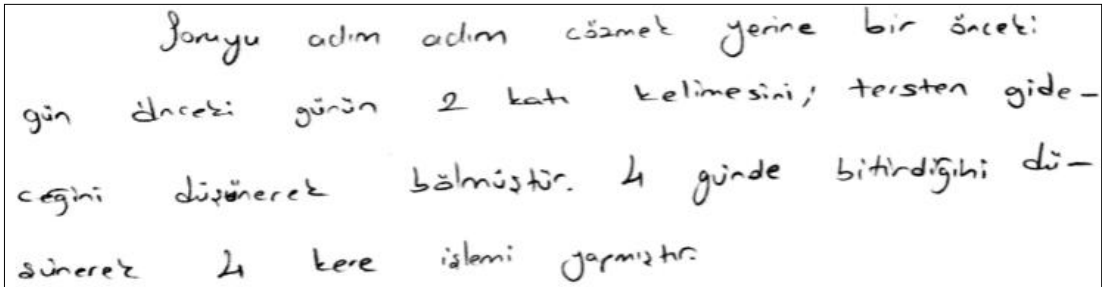 Soruyu adım adım çözmek yerine bir önceki
gün önceki günün 2 katı kelimesini, tersten gide-
ceğini düşünerek bölmüştür. 4 günde bitirdiğini dü-
şünerek 4 kere işlemi yapmıştır.